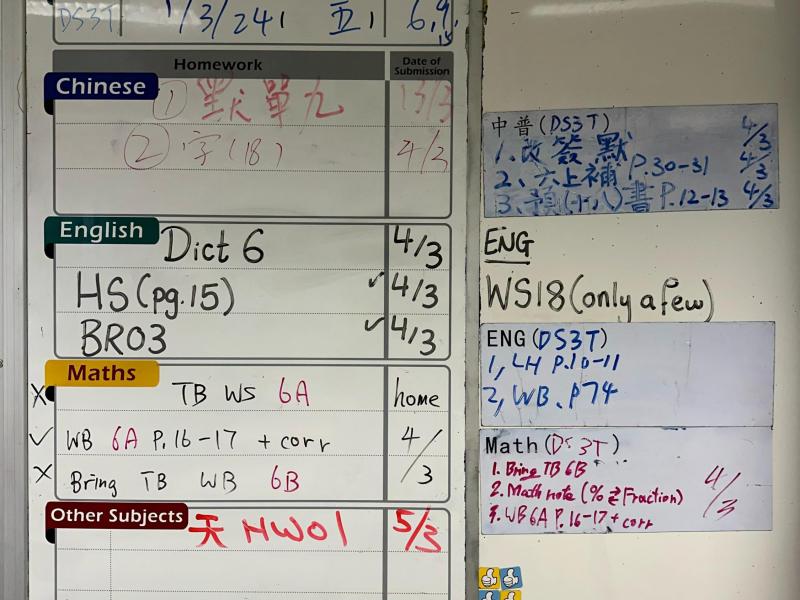 DS3T 1/3/24 五
Homework Date of Submission
Chinese
① 默單九 13/3
② 字(18) 4/3
English
Dict 6 4/3
HS (pg.15) ✓ 4/3
BR03 ✓ 4/3
Maths
X TB WS 6A home
✓ WB 6A P.16-17 + corr 4/3
X Bring TB WB 6B
Other Subjects
天 HW01 5/3
中普(DS3T)
1.改簽默 4/3
2、六上補 P.30-31 4/3
3.預(十八)書 P.12-13 4/3
ENG
WS18 (only a few)
ENG(DS3T)
1, LH P.10-11
2, WB. P74
Math(DS3T)
1. Bring TB 6B
2. Math note (% Fraction)
3. WB 6A P.16-17 + corr
4/3